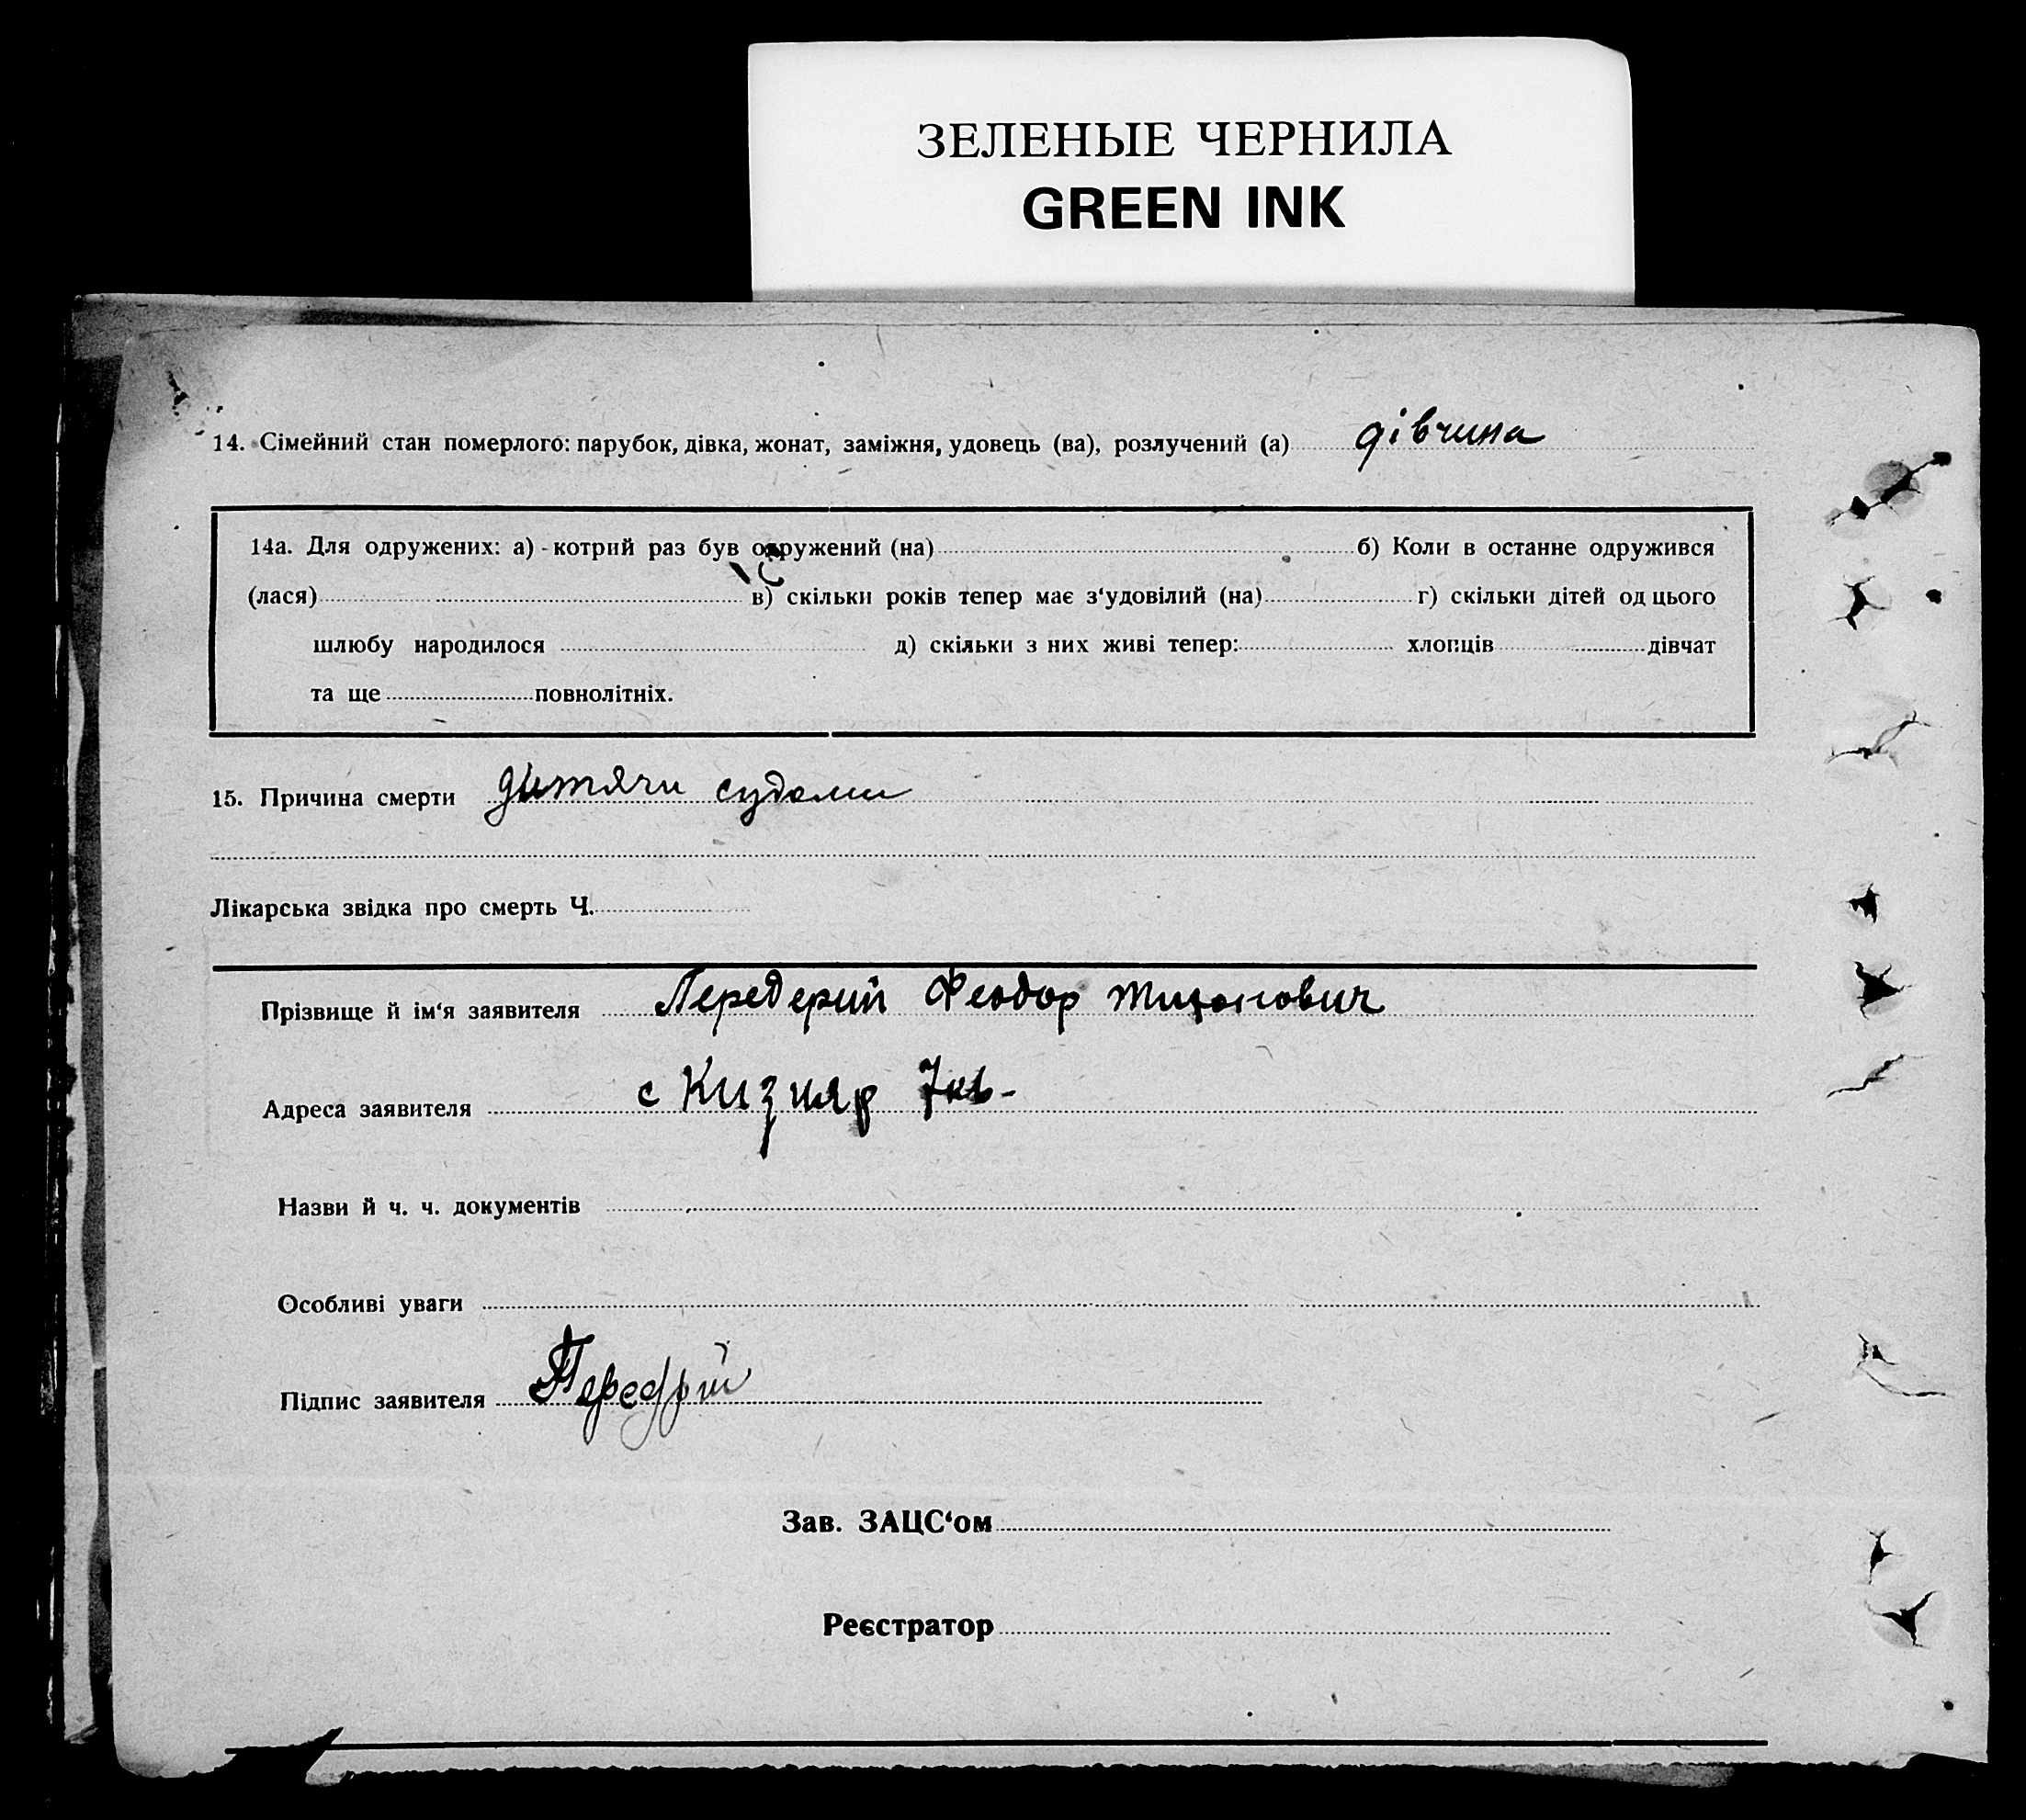 ЗЕЛЕНЫЕ ЧЕРНИЛА
GREEN INK
14. Сімейний стан померлого: парубок, дівка, жонат, заміжня, удовець (ва), розлучений (а) дівчина
14а. Для одружених: а) - котрий раз був одружений (на) б) Коли в останне одружився
(лася) в) скільки років тепер має з‘удовілий (на) г) скільки дітей од цього
шлюбу народилося д) скільки з них живі тепер: хлопців дівчат
та ще повнолітніх.
15. Причина смерти дитячи судоми
Лікарська звідка про смерть Ч.
Прізвище й ім‘я заявителя Передерий Феодор
Адреса заявителя с Кизияр 7кв-
Назви й ч. ч. документів
Особливі уваги
Підпис заявителя
Зав. ЗАЦС‘ом
Реєстратор